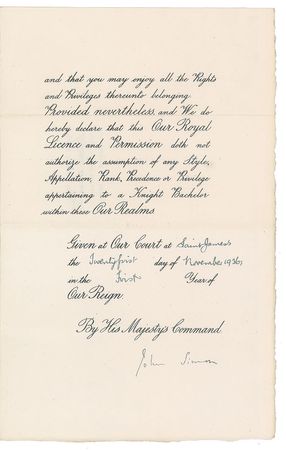 and that you may enjoy all the Rights
and Privileges thereunto belonging.
Provided nevertheless, and We do
hereby declare that this Our Royal
Licence and Permission doth not
authorize the assumption of any Style,
Appellation, Rank, Precedence or Privilege
appertaining to a Knight Bachelor
within these Our Realms
Given at Our Court at Saint James's
the Twentyfirst day of November 1936,
in the First Year of
Our Reign.
By His Majesty's Command
John Simon